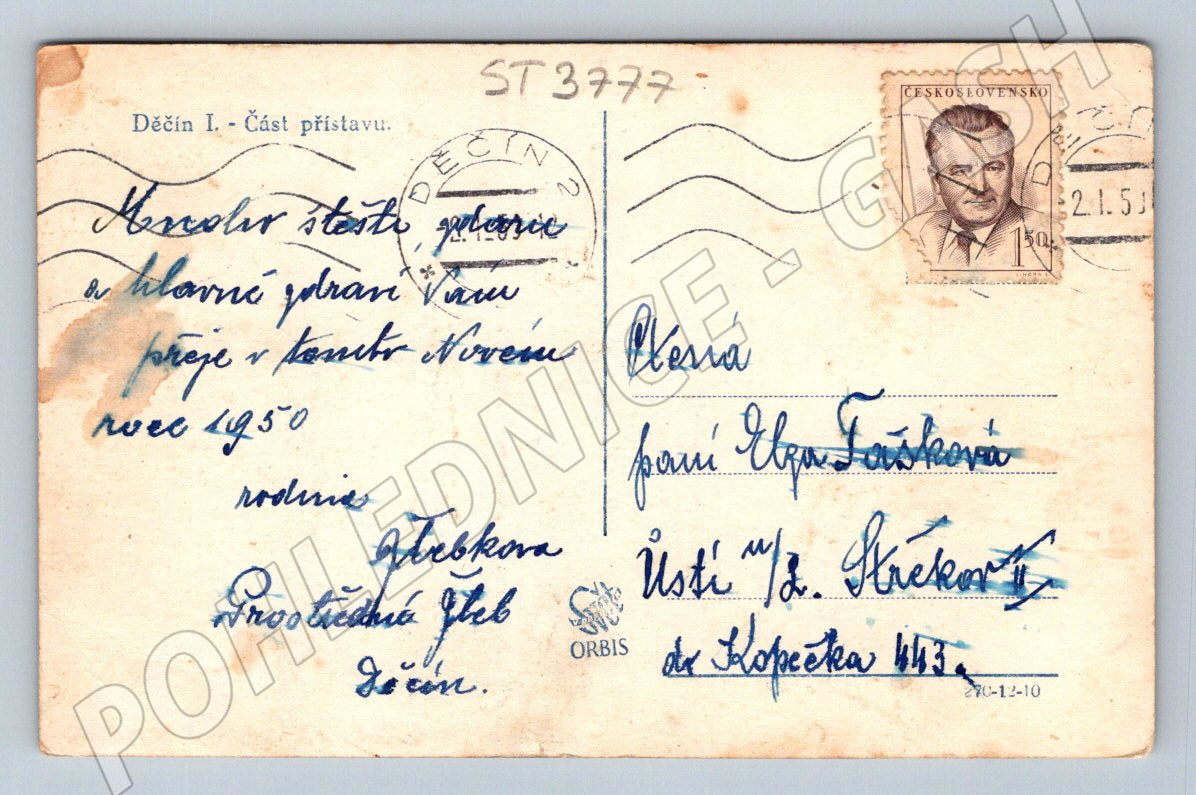 ST 3777
Děčín I. - Část přístavu.
DĚČÍN 2
ČESKOSLOVENSKO
1 50
2.I.50
Mnoho štěstí, zdaru
a hlavně zdraví Vám
přeje v tomto Novém
roce 1950
rodina
Žlebkova
Prostřední Žleb
Děčín.
Ctěná
paní Elza Tašková
Ústí n/L. Střekov II
dr Kopečka 443.
ORBIS
270-12-10
POHLEDNICE.CASH